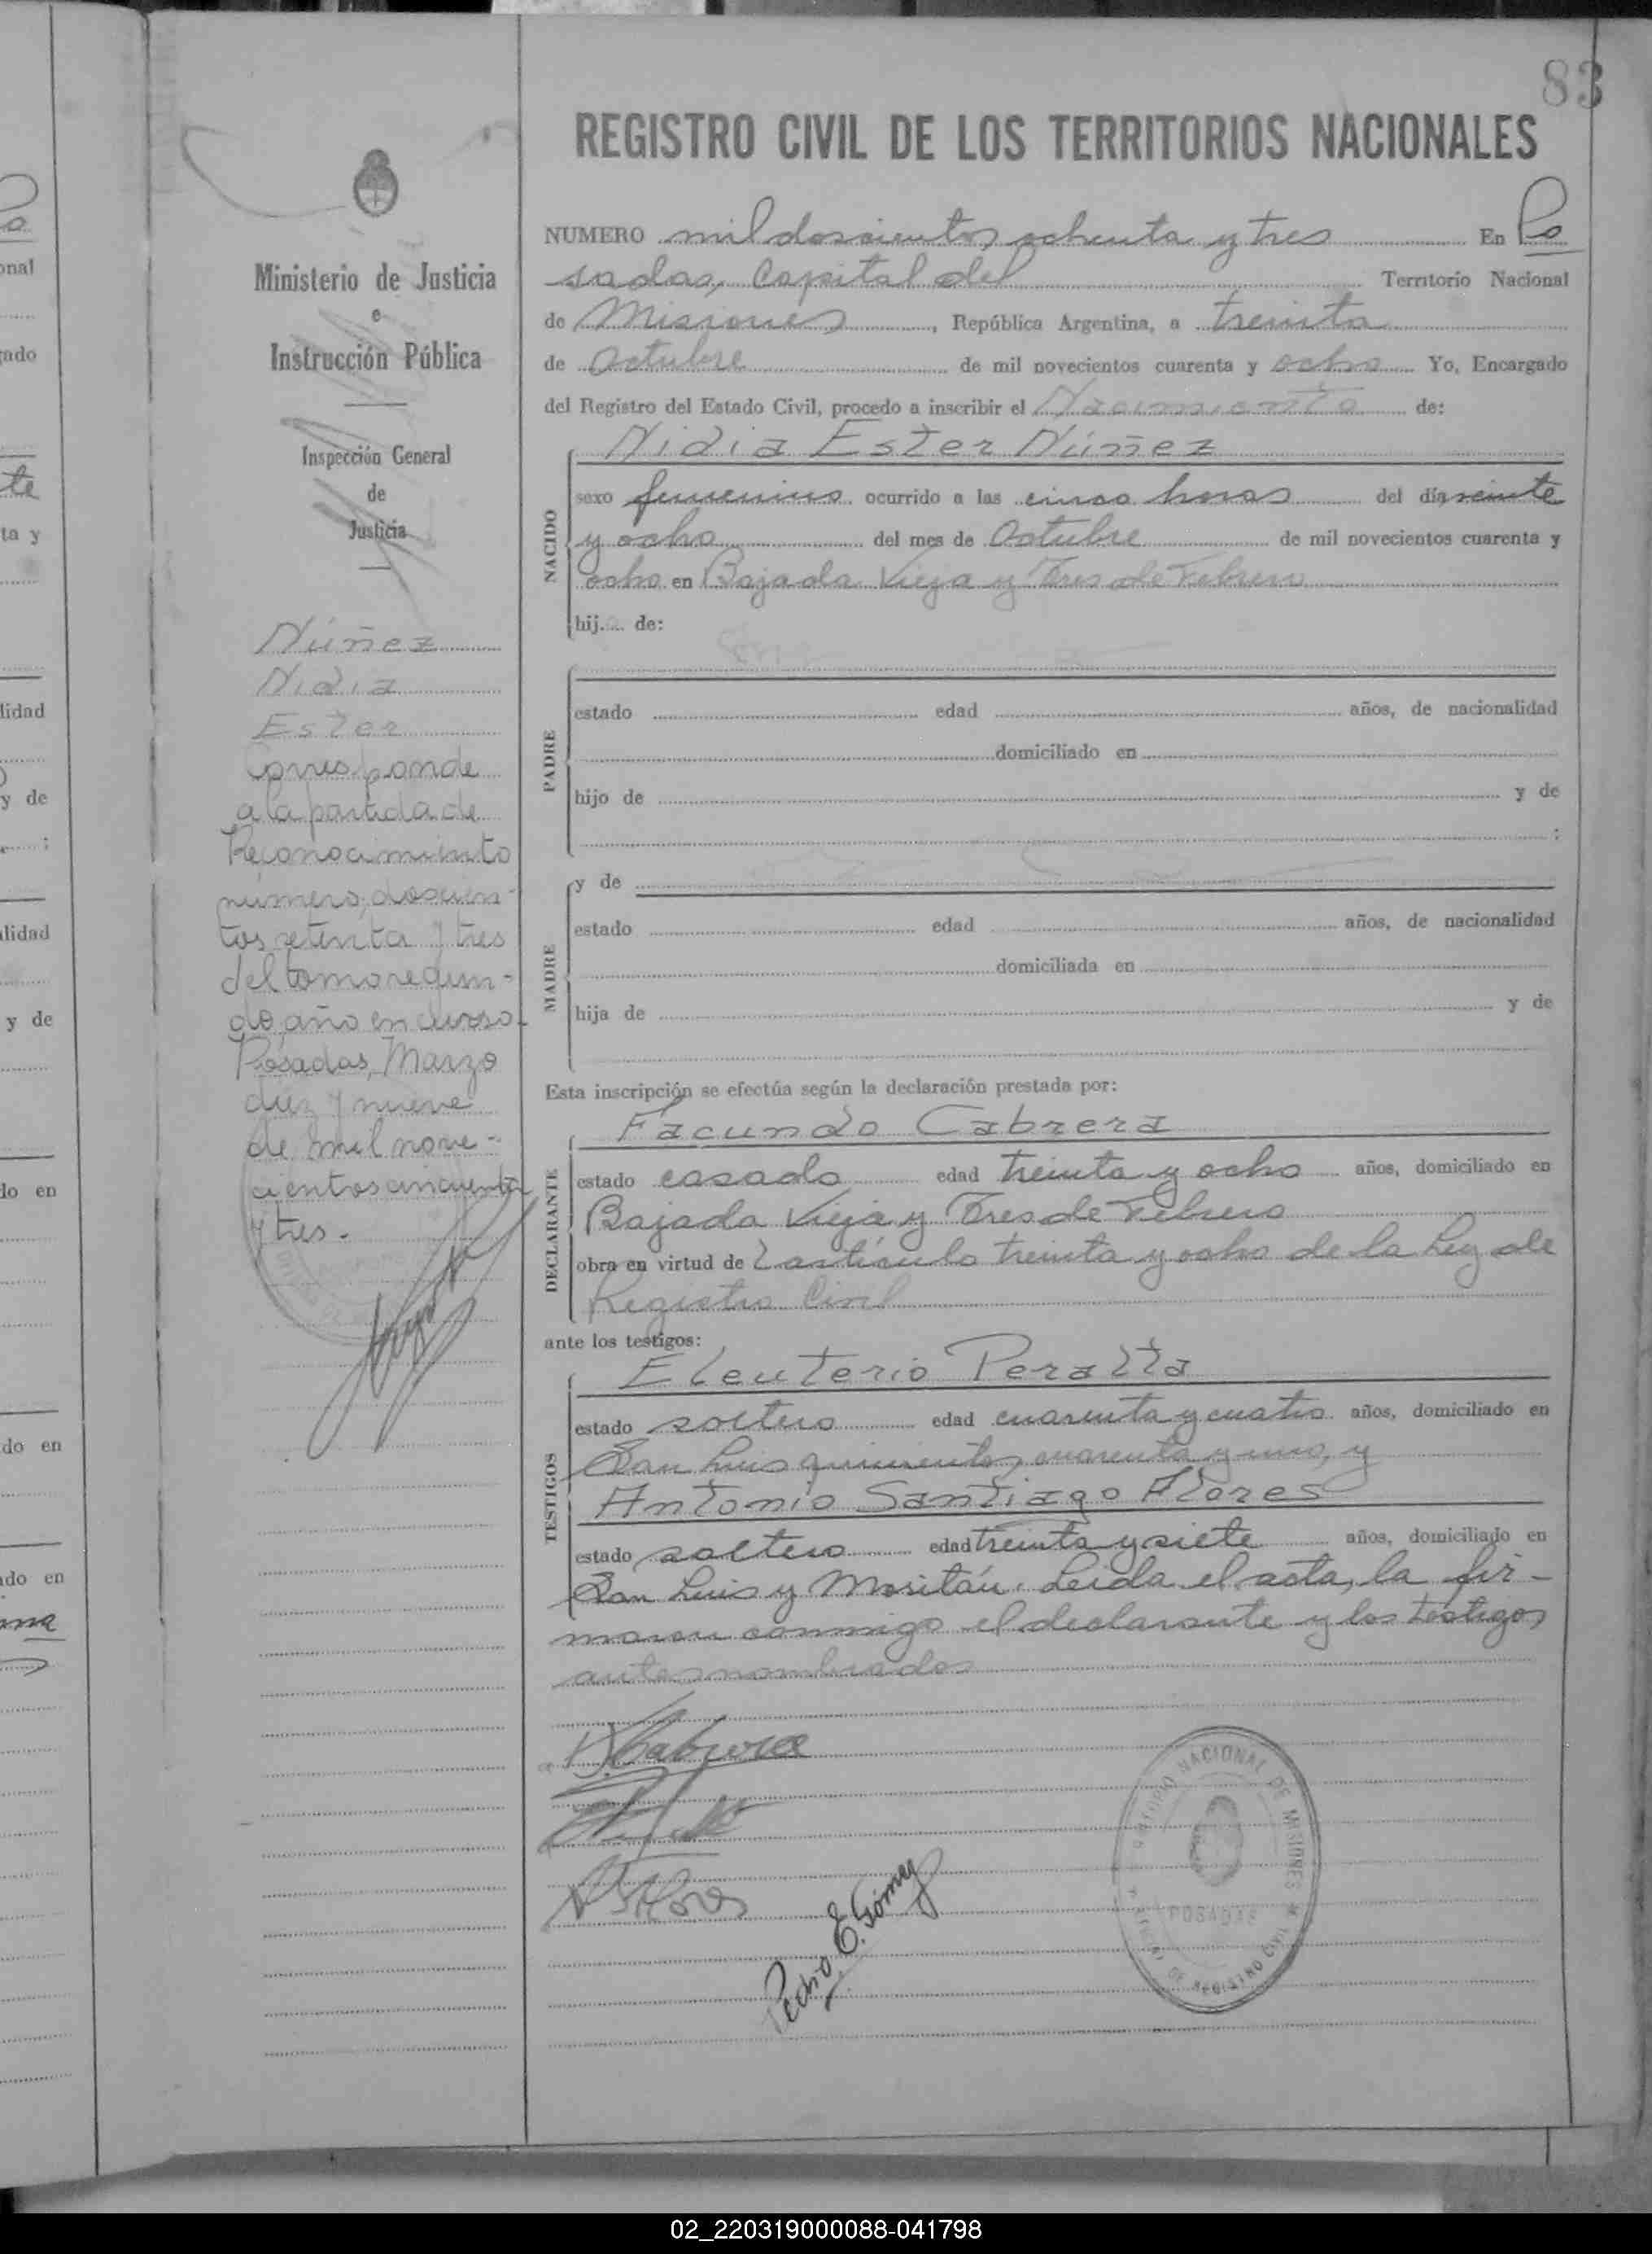 83
REGISTRO CIVIL DE LOS TERRITORIOS NACIONALES
NUMERO mil doscientos ochenta y tres En Po
sadas, Capital del Territorio Nacional
de Misiones, República Argentina, a treinta
de Octubre de mil novecientos cuarenta y ocho Yo, Encargado
del Registro del Estado Civil, procedo a inscribir el Nacimiento de:
Nidia Ester Núñez
NACIDO
sexo femenino ocurrido a las cinco horas del día veinte
y ocho del mes de Octubre de mil novecientos cuarenta y
ocho en Bajada Vieja y Tres de Febrero
hij... de:
PADRE
estado edad años, de nacionalidad
domiciliado en
hijo de y de
:
MADRE
y de
estado edad años, de nacionalidad
domiciliada en
hija de y de
Esta inscripción se efectúa según la declaración prestada por:
Facundo Cabrera
DECLARANTE
estado casado edad treinta y ocho años, domiciliado en
Bajada Vieja y Tres de Febrero
obra en virtud de l artículo treinta y ocho de la Ley de
Registro Civil
ante los testigos:
Eleuterio Peralta
TESTIGOS
estado soltero edad cuarenta y cuatro años, domiciliado en
San Luis quinientos cuarenta y uno, y
Antonio Santiago Flores
estado soltero edad treinta y siete años, domiciliado en
San Luis y Moritán. Leida el acta, la fir-
maron conmigo el declarante y los testigos
antes nombrados
Cabrera
Flores
Pedro E. Gómez
TERRITORIO NACIONAL DE MISIONES
POSADAS
OFICINA DE REGISTRO CIVIL
Ministerio de Justicia
e
Instrucción Pública
Inspección General
de
Justicia
Núñez
Nidia
Ester
Corresponde
a la partida de
Reconocimiento
número doscien-
tos setenta y tres
del tomo segun-
do, año en curso.
Posadas, Marzo
diez y nueve
de mil nove-
cientos cincuenta
y tres.
02_220319000088-041798